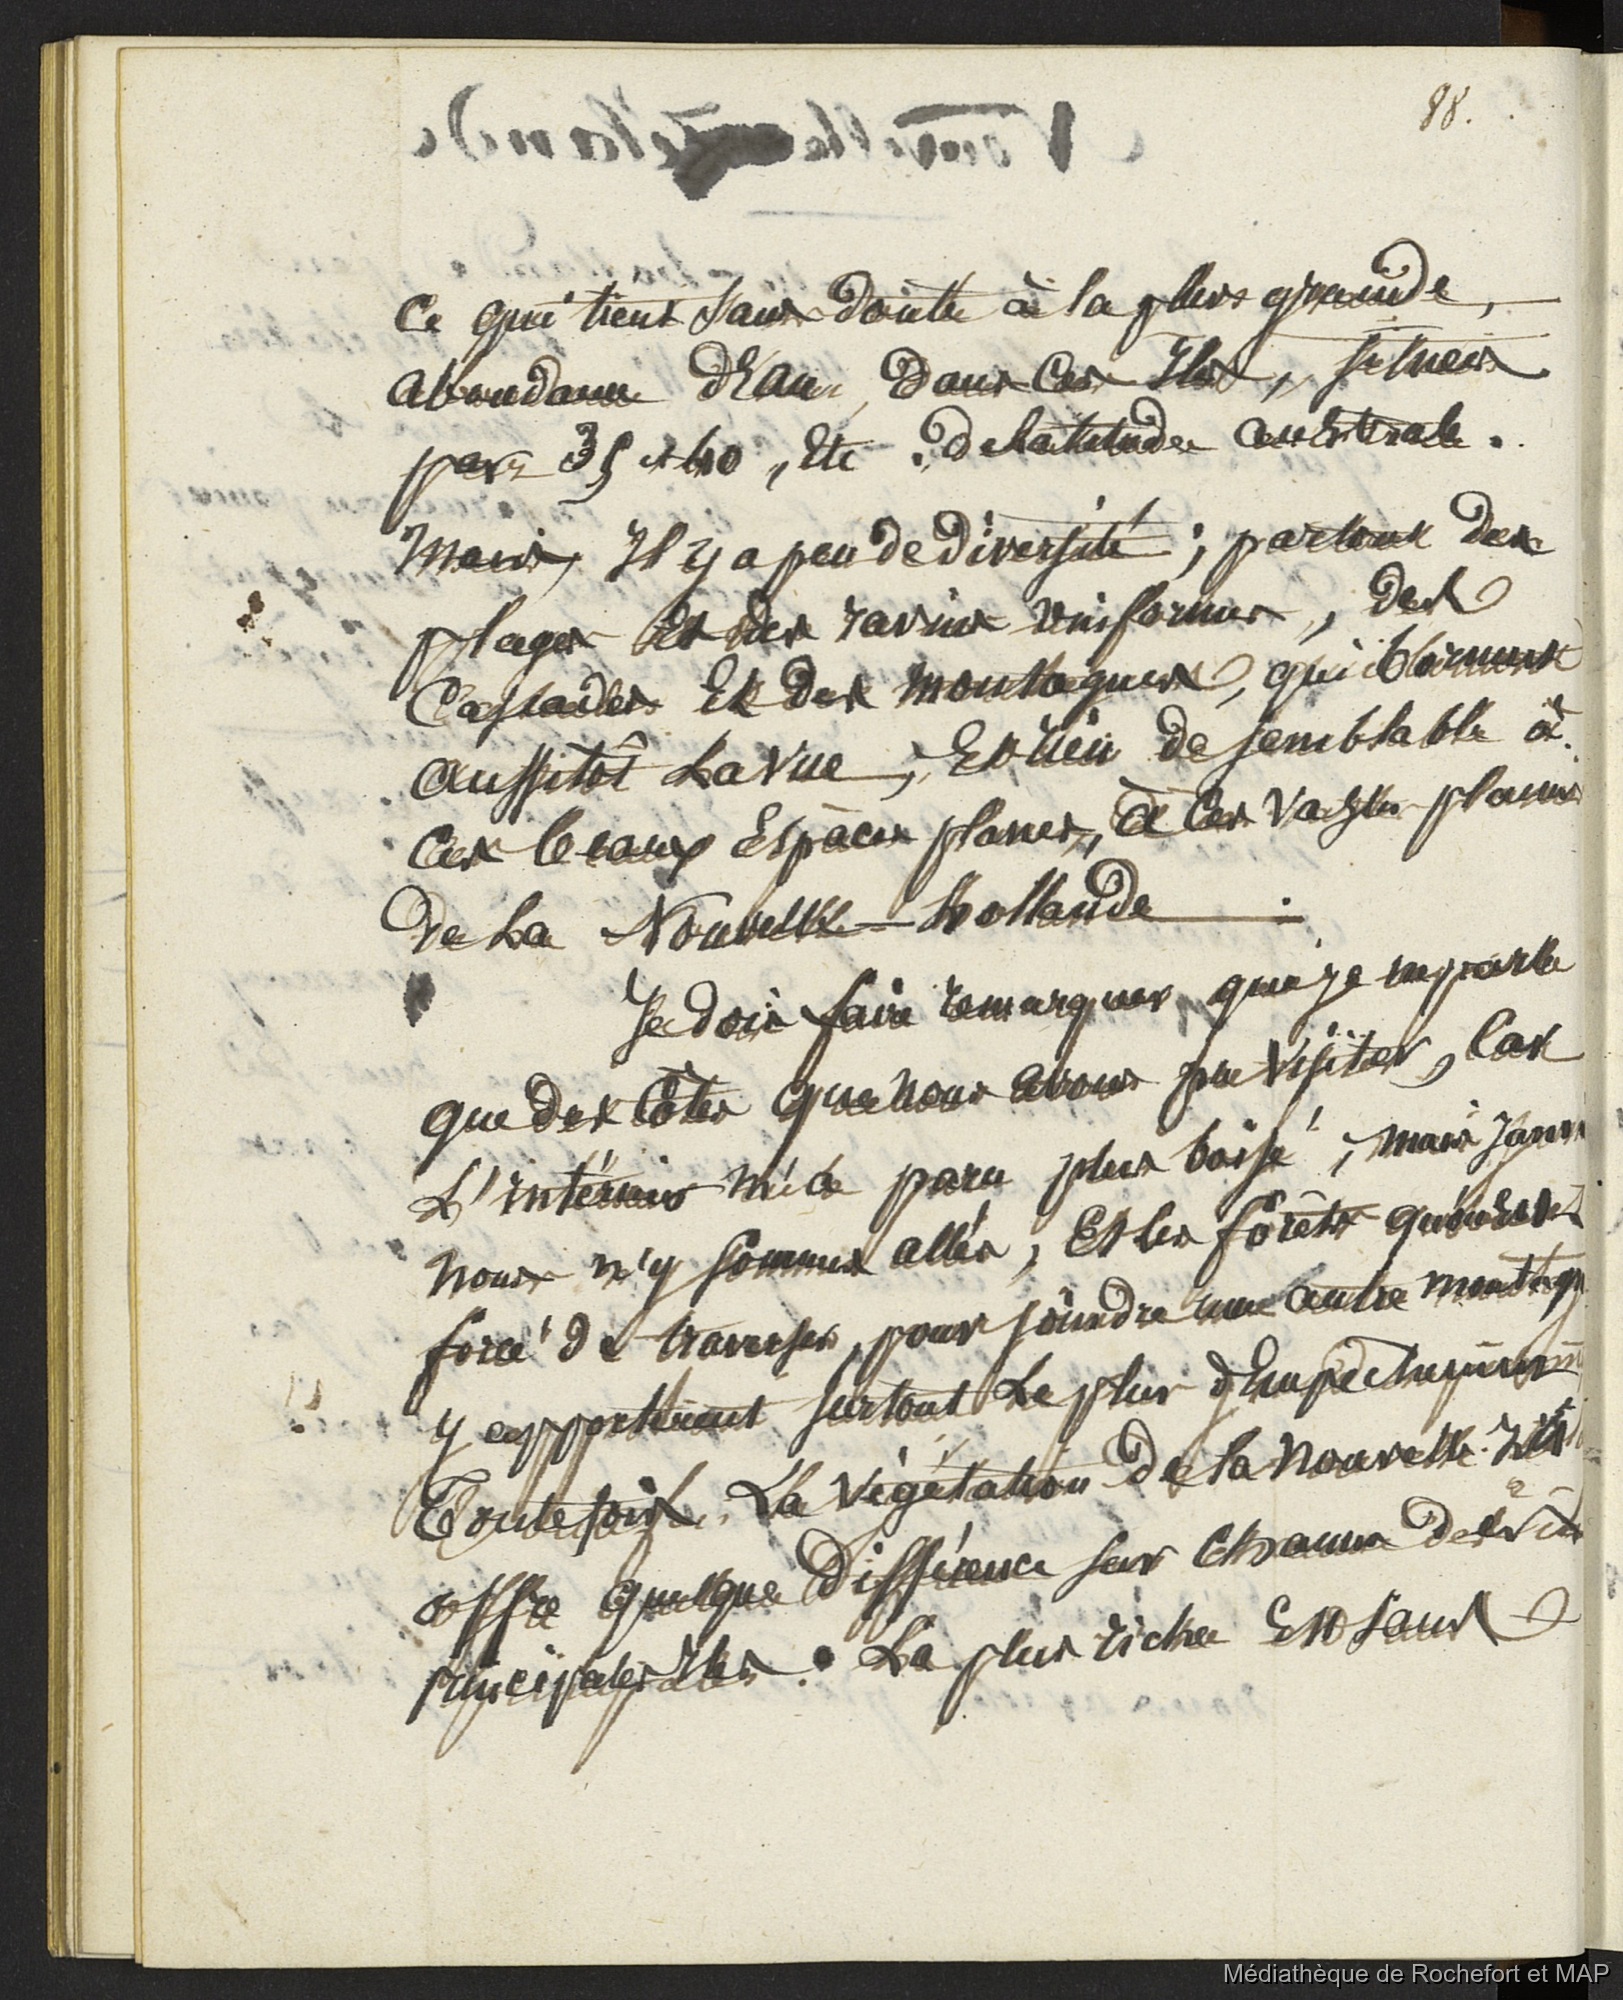 88.
Ce qui tient sans doute à la plus grande,
abondance d'Eau, Dans Ces Iles, situées
par 35 et 40, Etc. de latitude australe.
Mais, Il y a peu de diversité ; partout des
plages et des ravins uniformes, des
Cascades Et des montagnes, qui bornent
aussitôt La vue, Et rien de semblable à
Ces beaux Espaces planes, à Ces vastes plaines
De La Nouvelle-Hollande.
Je dois faire remarquer que je ne parle
que des Côtes que nous avons pu visiter, Car
L'intérieur m'a paru plus boisé ; mais jamais
nous n'y sommes allés, Et les forêts qu'on est
forcé de traverser, pour joindre une autre montagne
y apportent surtout Le plus d'Empêchement
Toutefois. La végétation de la Nouvelle
offre quelque Différence sur Chacune des
principales Iles. La plus riche Est sans
Médiathèque de Rochefort et MAP